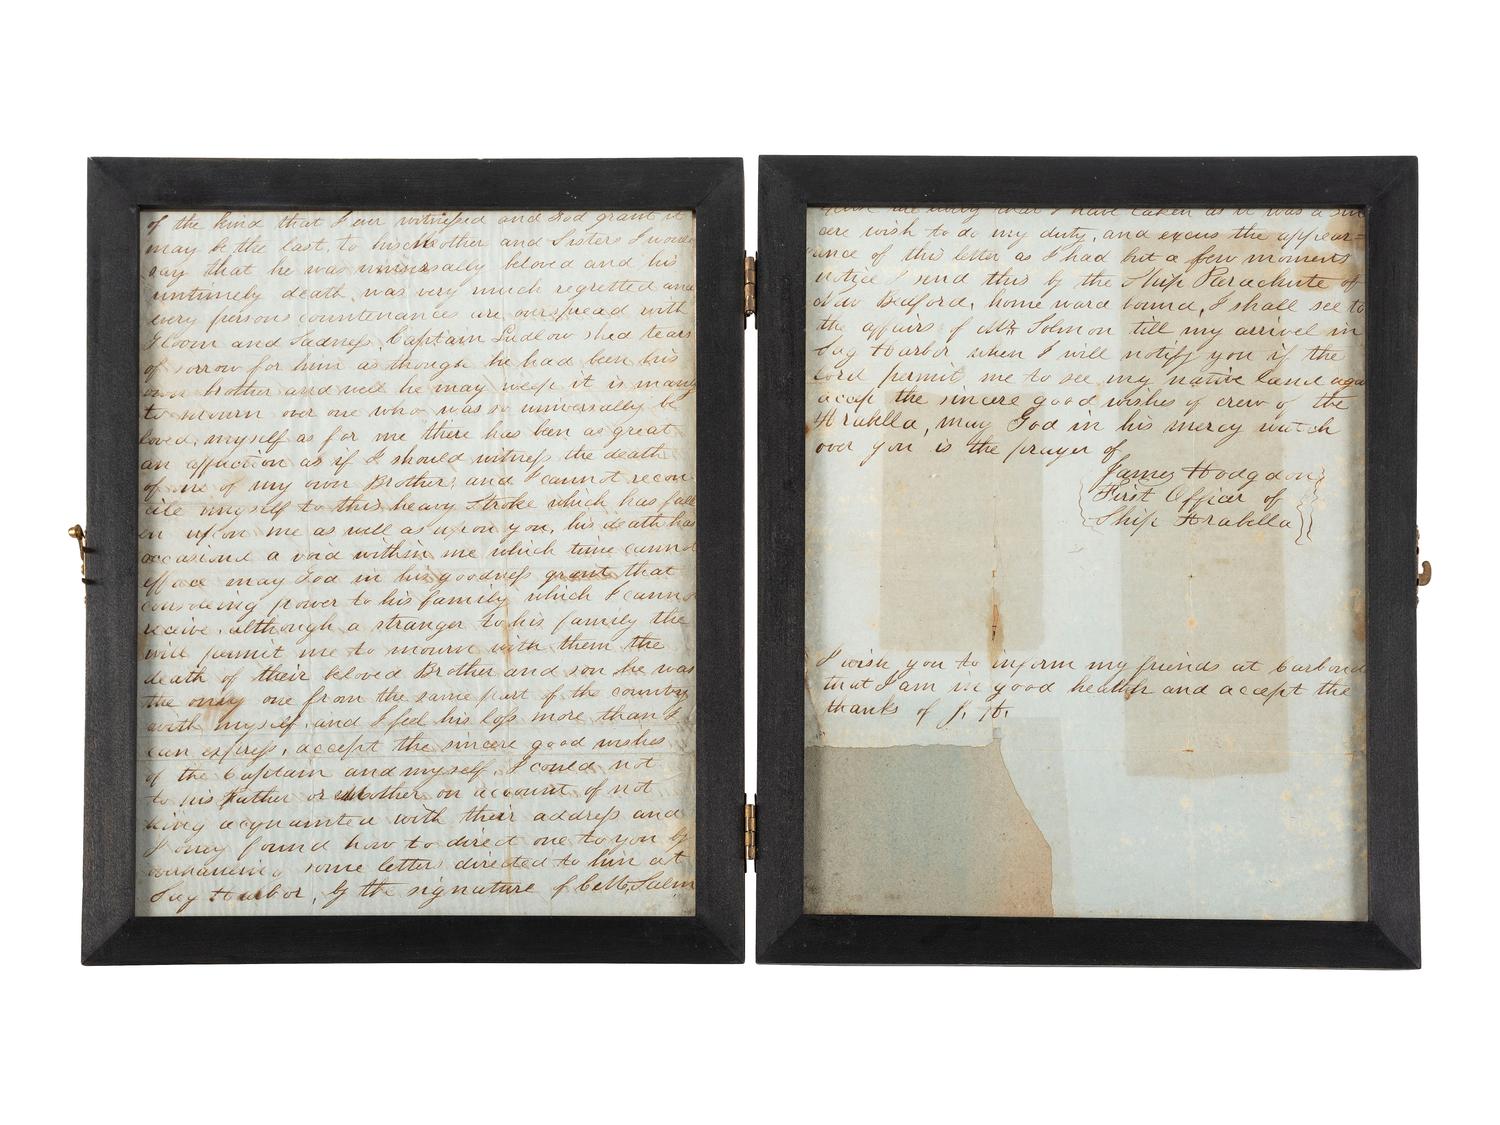 of the kind that I ever witnessed and God grant it
may be the last, to his Mother and Sisters I would
say that he was universally beloved and his
untimely death was very much regretted and
every persons countenances are overspread with
Gloom and Sadness, Captain Ludlow shed tears
of sorrow for him as though he had been his
own brother and well he may weep it is many
to mourn over one who was so universally be
loved, myself as for me there has been as great
an affliction as if I should witness the death
of one of my own Brother, and I cannot recon
cile myself to this heavy Stroke which has fall
en upon me as well as upon you, his death has
occasiond a void within me which time cannot
efface may God in his goodness grant that
consoleing power to his family which I cannot
receive. although a stranger to his family the
will permit me to mourn with them the
death of their beloved Brother and son he was
the only one from the same part of the country
with myself, and I feel his loss more than I
can express, accept the sincere good wishes
of the Captain and myself, I could not
to his Father or Mother on account of not
being acquainted with their address and
I only found how to direct one to you by
overhauling some letters directed to him at
Sag Harbor, by the signature of
that I have taken as it was a sin
cere wish to do my duty, and excus the appear=
ance of this letter as I had but a few moments
notice I send this by the Ship Parachute of
New Bedford, home ward bound, I shall see to
the affairs of Mr Solmon till my arrivel in
Sag Harbor when I will notify you if the
lord permit me to see my native land again
accep the sincere good wishes of crew of the
Arabella, may God in his mercy watch
over you is the prayer of
James Hodgdon
First Officer of
Ship Arabella
I wish you to inform my friends at
that I am in good health and accept the
thanks of J. H.